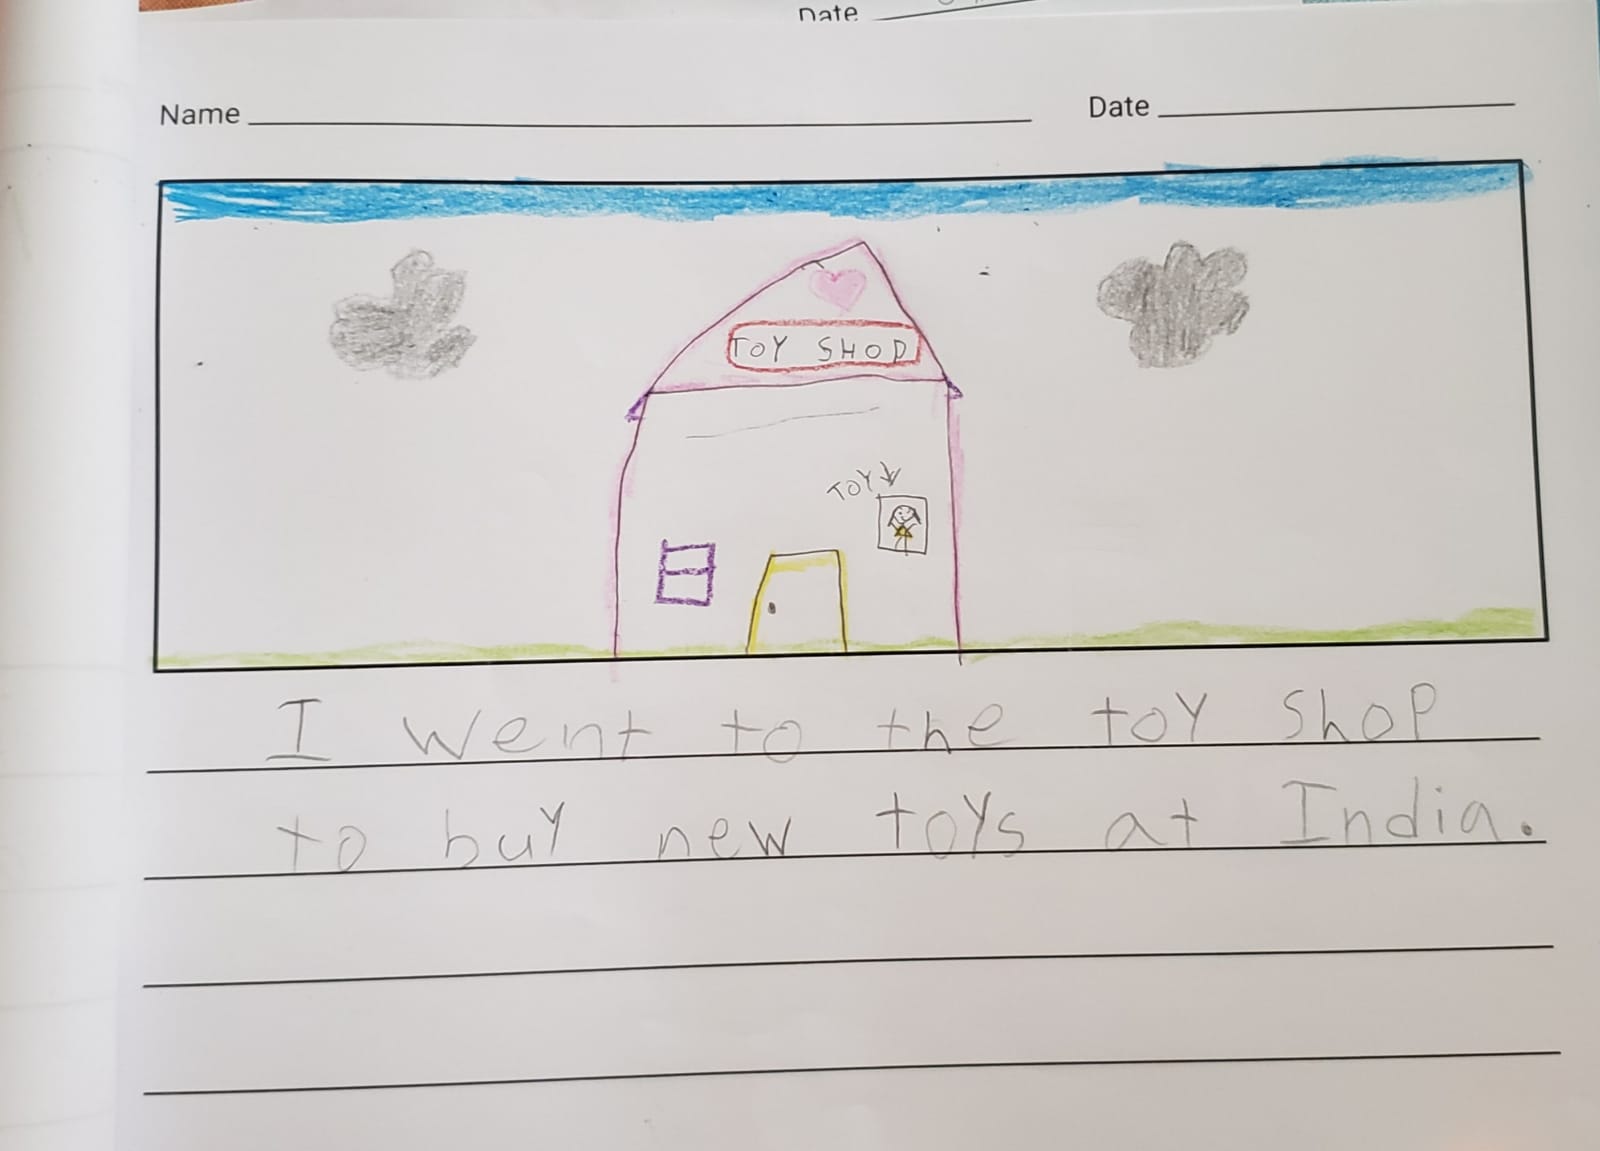 Date
Name Date
TOY SHOP
TOY
I went to the toy shop
to buy new toys at India.